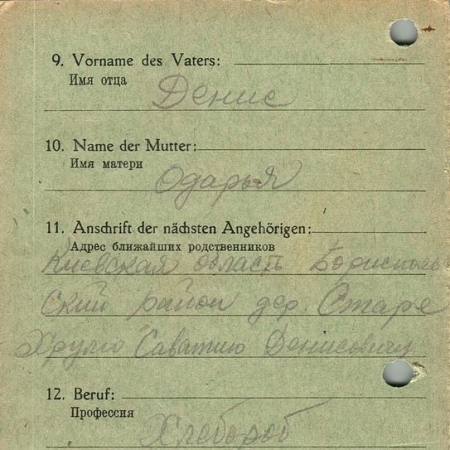 9. Vorname des Vaters:
Имя отца
Денис
10. Name der Mutter:
Имя матери
Одарья
11. Anschrift der nächsten Angehörigen:
Адрес ближайших родственников
Киевская область Борисполь
ский район дер. Старе
Хрулю Саватию Денисовичу
12. Beruf:
Профессия
Хлебороб